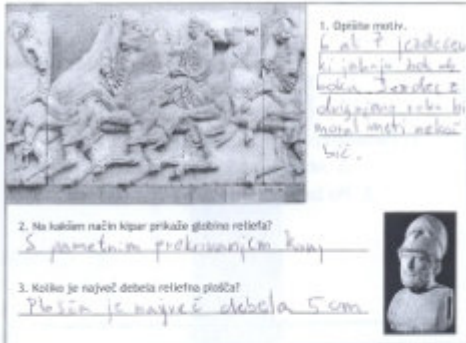 1. Opišite motiv.
6 ali 7 jezdecev
ki jahajo bok ob
boku. Jezdec z
dvignjeno roko bi
moral imeti nekoč
bič.
2. Na kakšen način kipar prikaže globino reliefa?
S pametnim prekrivanjem konj
3. Koliko je največ debela reliefna plošča?
Plošča je največ debela 5 cm